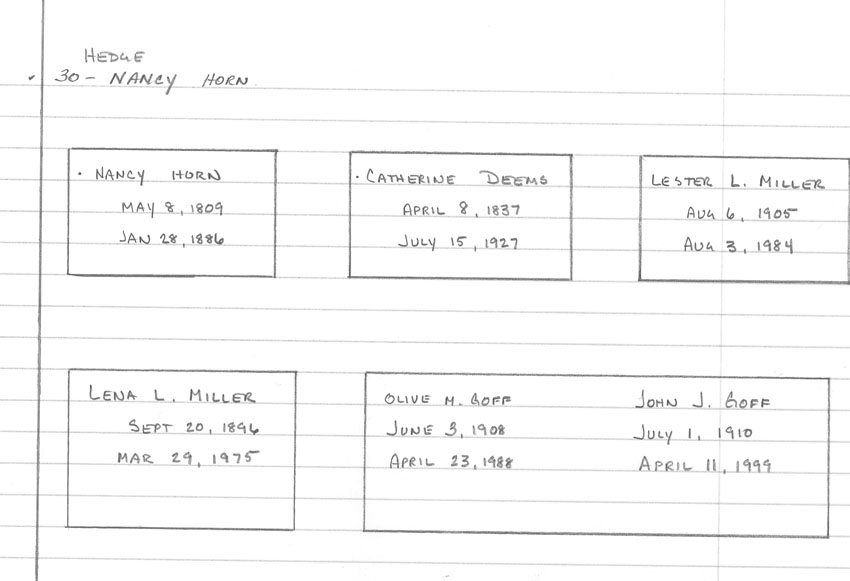 HEDGE
✓ 30 - NANCY HORN
· NANCY HORN
MAY 8, 1809
JAN 28, 1886
· CATHERINE DEEMS
APRIL 8, 1837
JULY 15, 1927
LESTER L. MILLER
AUG 6, 1905
AUG 3, 1984
LENA L. MILLER
SEPT 20, 1896
MAR 29, 1975
OLIVE M. GOFF
JUNE 3, 1908
APRIL 23, 1988
JOHN J. GOFF
JULY 1, 1910
APRIL 11, 1999